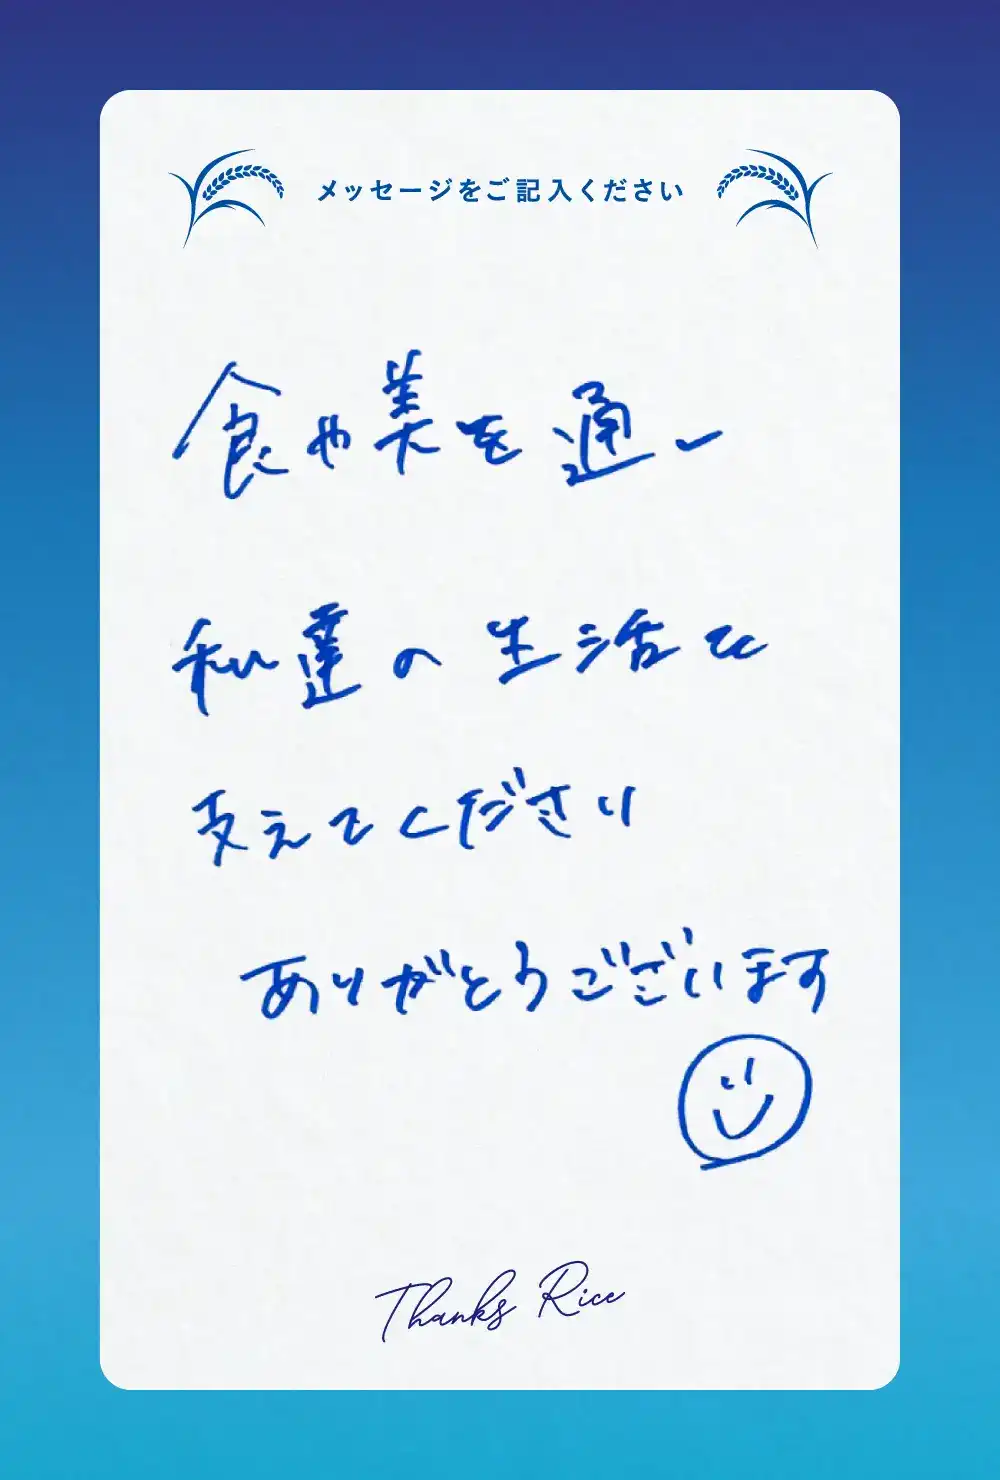 メッセージをご記入ください
食や美を通し
私達の生活を
支えてくださり
ありがとうございます
Thanks Rice